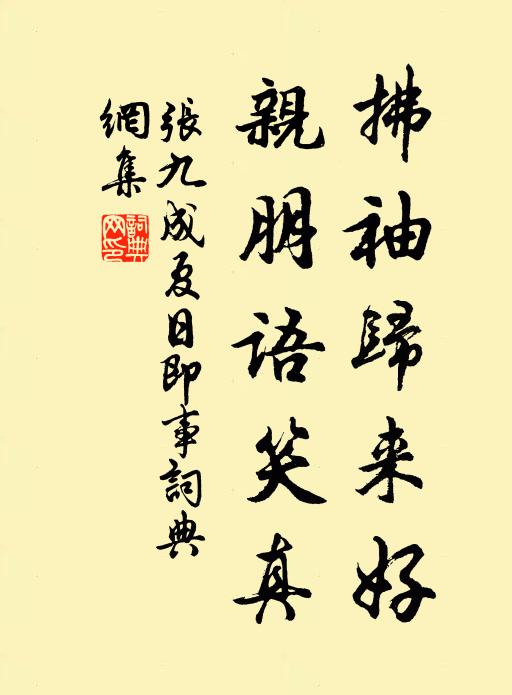 拂袖歸来好
親朋語笑真
張九成夏日即事詞典
網集
詞典
网印